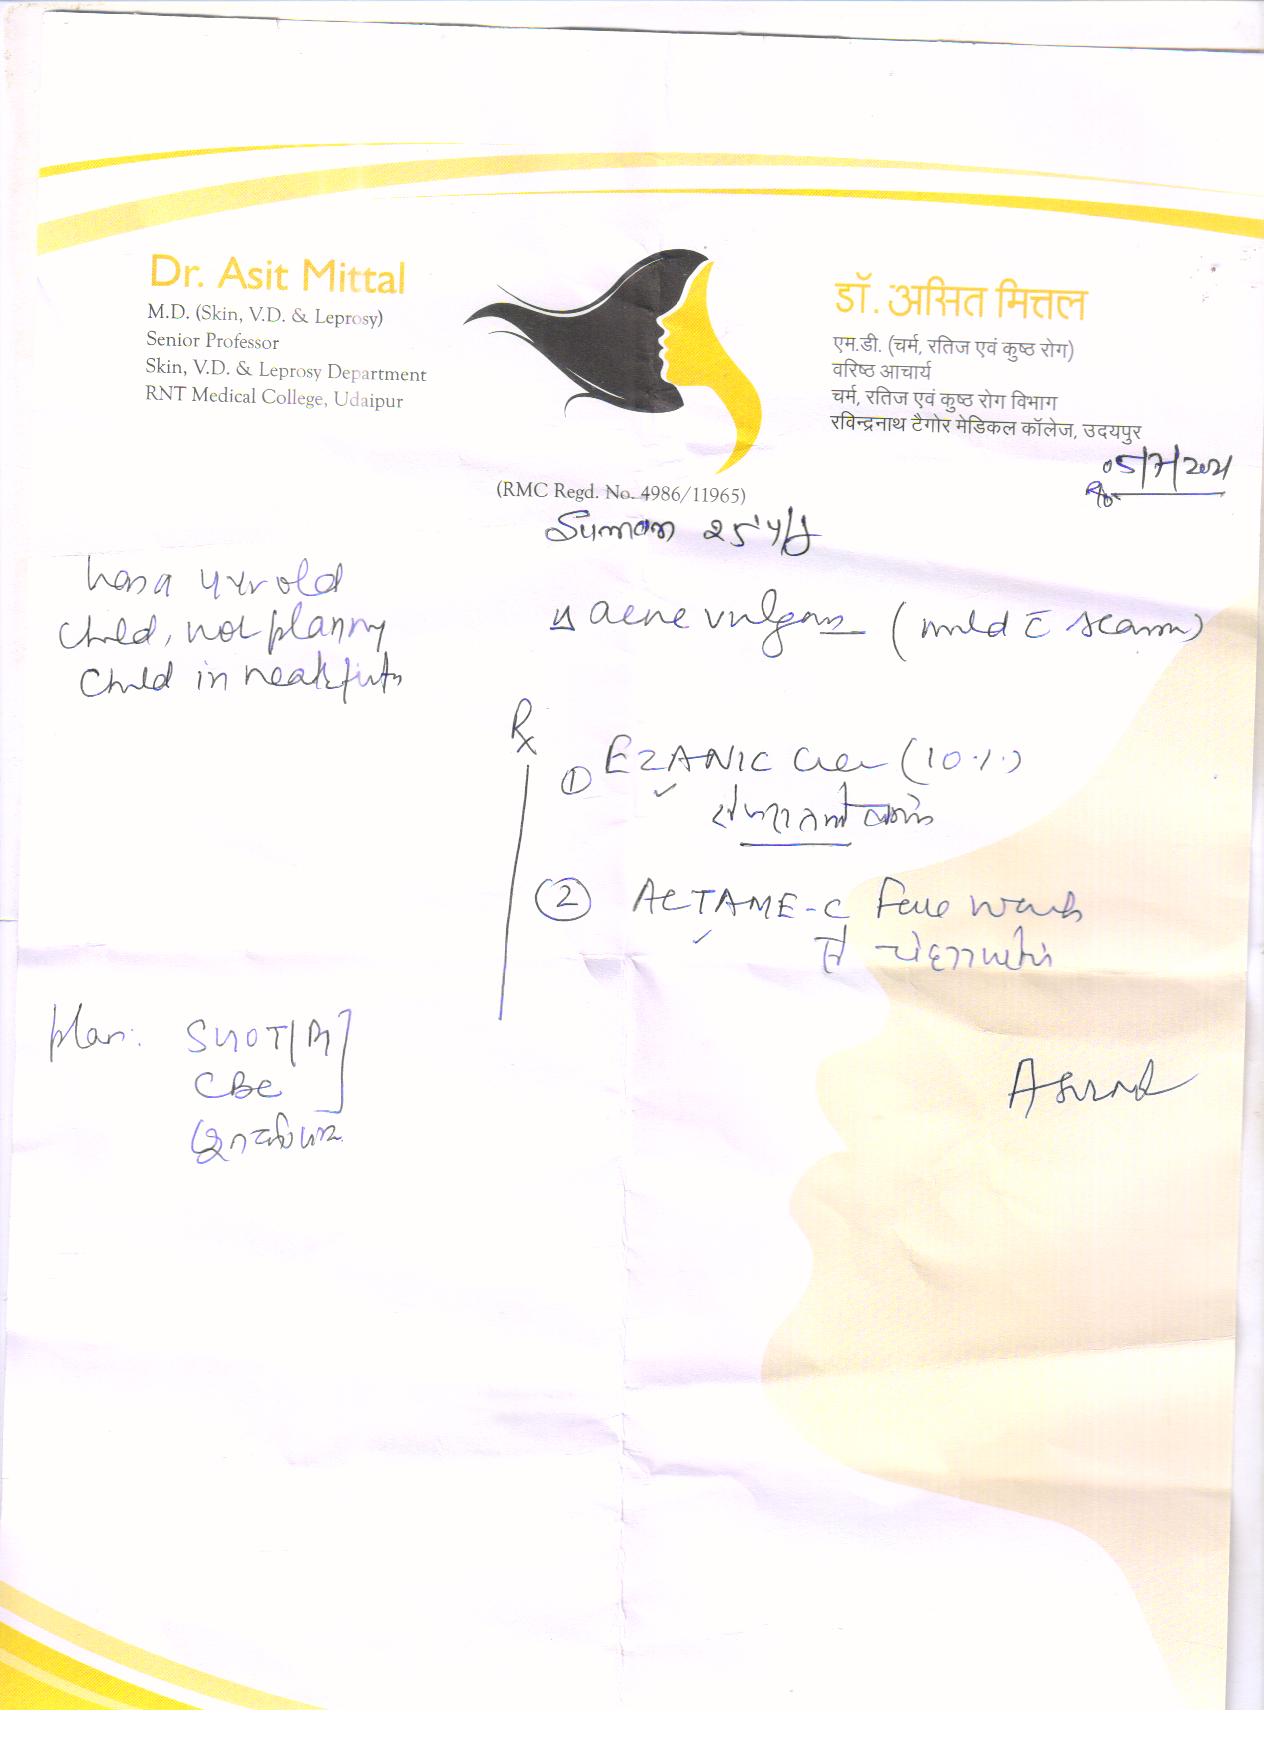 Dr. Asit Mittal
M.D. (Skin, V.D. & Leprosy)
Senior Professor
Skin, V.D. & Leprosy Department
RNT Medical College, Udaipur
डॉ. असित मित्तल
एम.डी. (चर्म, रतिज एवं कुष्ठ रोग)
वरिष्ठ आचार्य
चर्म, रतिज एवं कुष्ठ रोग विभाग
रविन्द्रनाथ टैगोर मेडिकल कॉलेज, उदयपुर
05/7/2021
(RMC Regd. No. 4986/11965)
Suman 25 y/f
has a 4 yr old
child, not planny
child in near
acne vulgaris (mild c̄ scars)
Rx
① EZANIC Cream (10%)
② ACTAME-C Face wash
से
plan: SGOT/PT
CBC